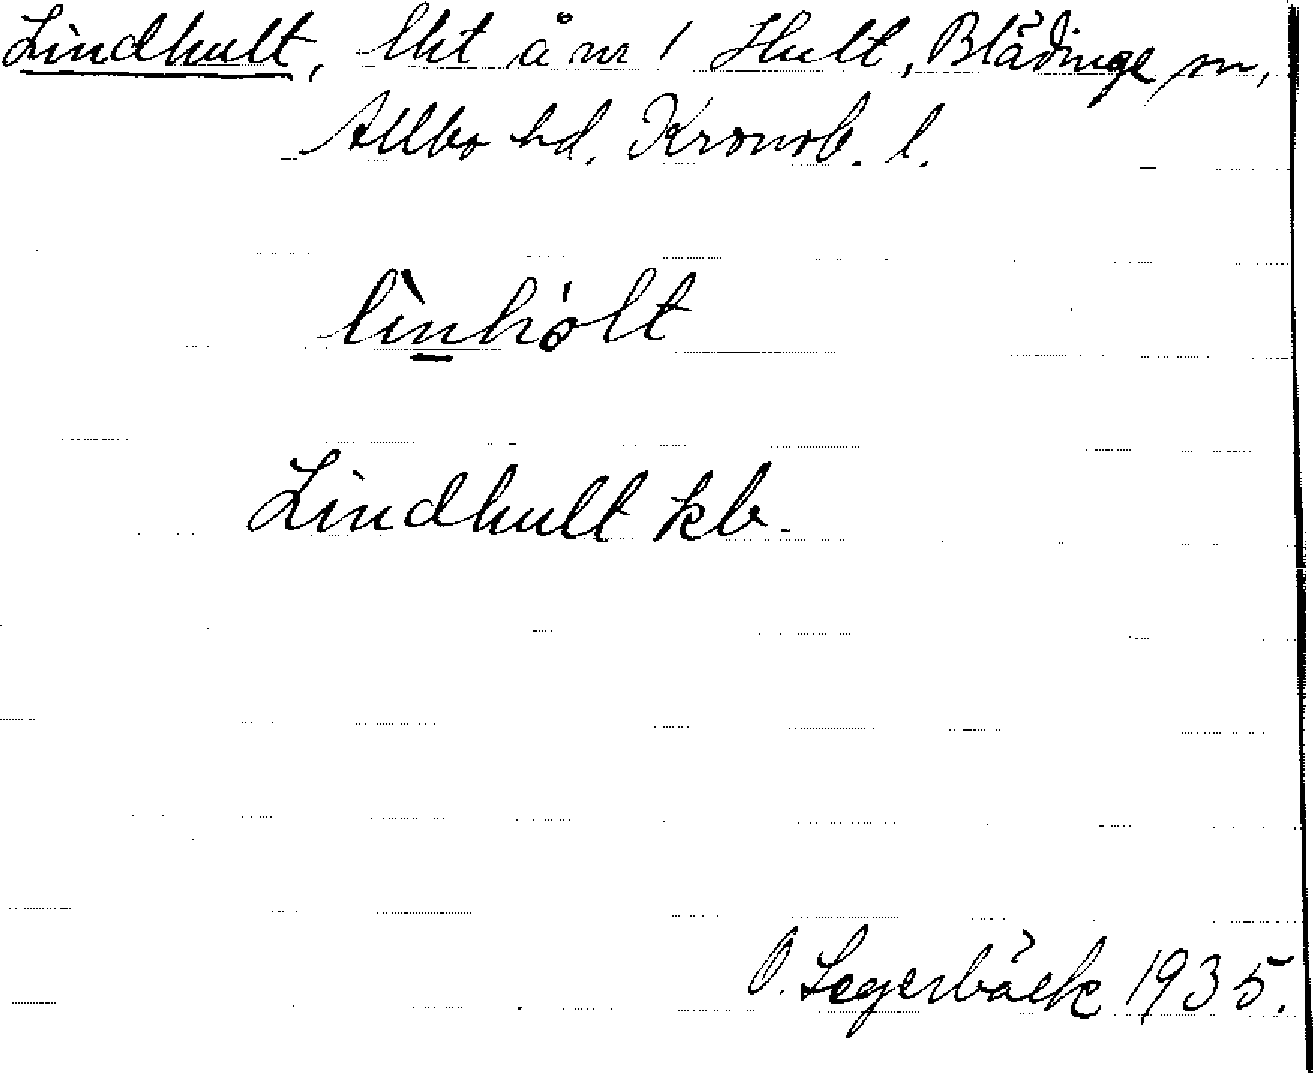 Lindhult, lht å nr 1 Hult, Blädinge sn,
Allbo hd. Kronob. l.
lìnhò̩lt
Lindhult kb.
P. Segerbäck 1935.